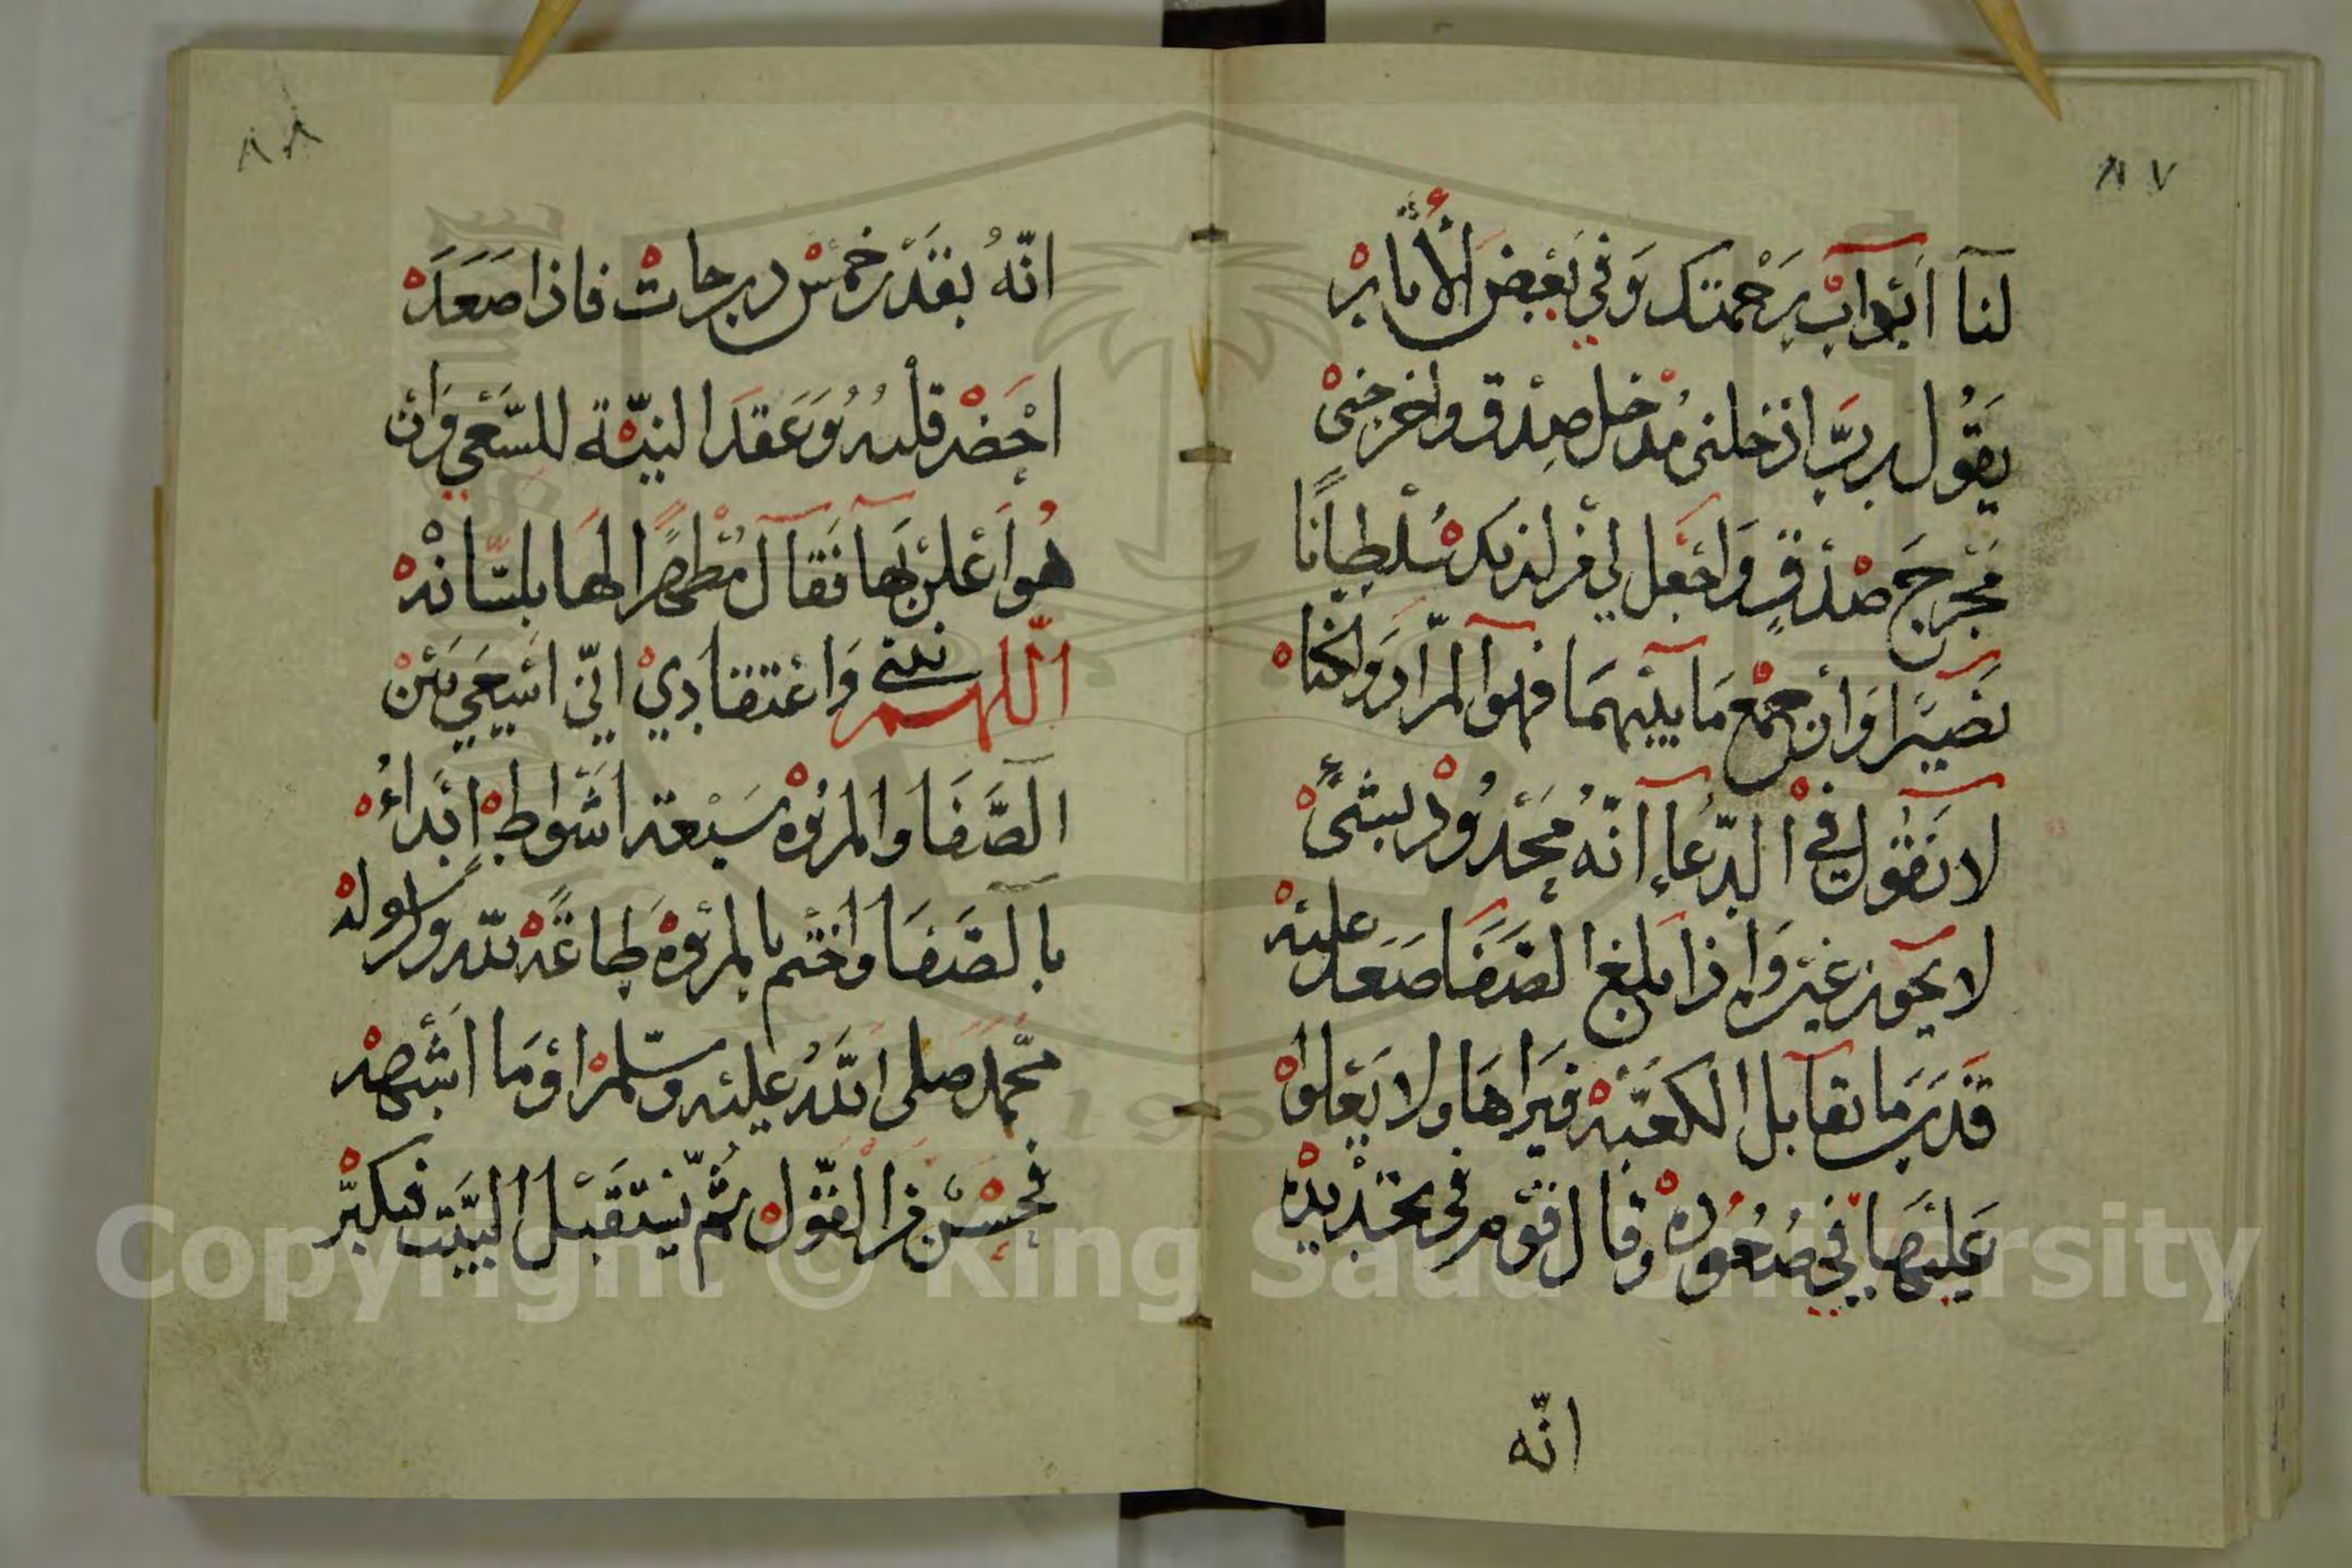 ٨٧
لنا ابواب رحمتك وفي بعض الأثار
يقول رب ادخلني مدخل صدق واخرجني
مخرج صدق واجعل لي من لدنك سلطانا
نصيرا وان جمع ما بينهما فهو المراد ولكنا
لا نقول في الدعاء انه محدود بشيء
لا يجوز غيره واذا بلغ الصفا صعد عليه
قدر ما تقابل الكعبة فيراها ولا يعلوا
عليها في صعوده وقال قوم في تحديده
انه
٨٨
انه بقدر خمس درجات فاذا صعده
احضر قلبه وعقد النية للسعي وان
هو اعلن بها فقال مظهرا لها بلسانه
اللهم نيتي واعتقادي اني اسعي بين
الصفا والمروة سبعة اشواط ابداء
بالصفا واختم بالمروة طاعة لله ولرسوله
محمد صلى الله عليه وسلم او ما اشبهه
فحسن من القول ثم يستقبل البيت فيكبر
Copyright © King Saud University
195